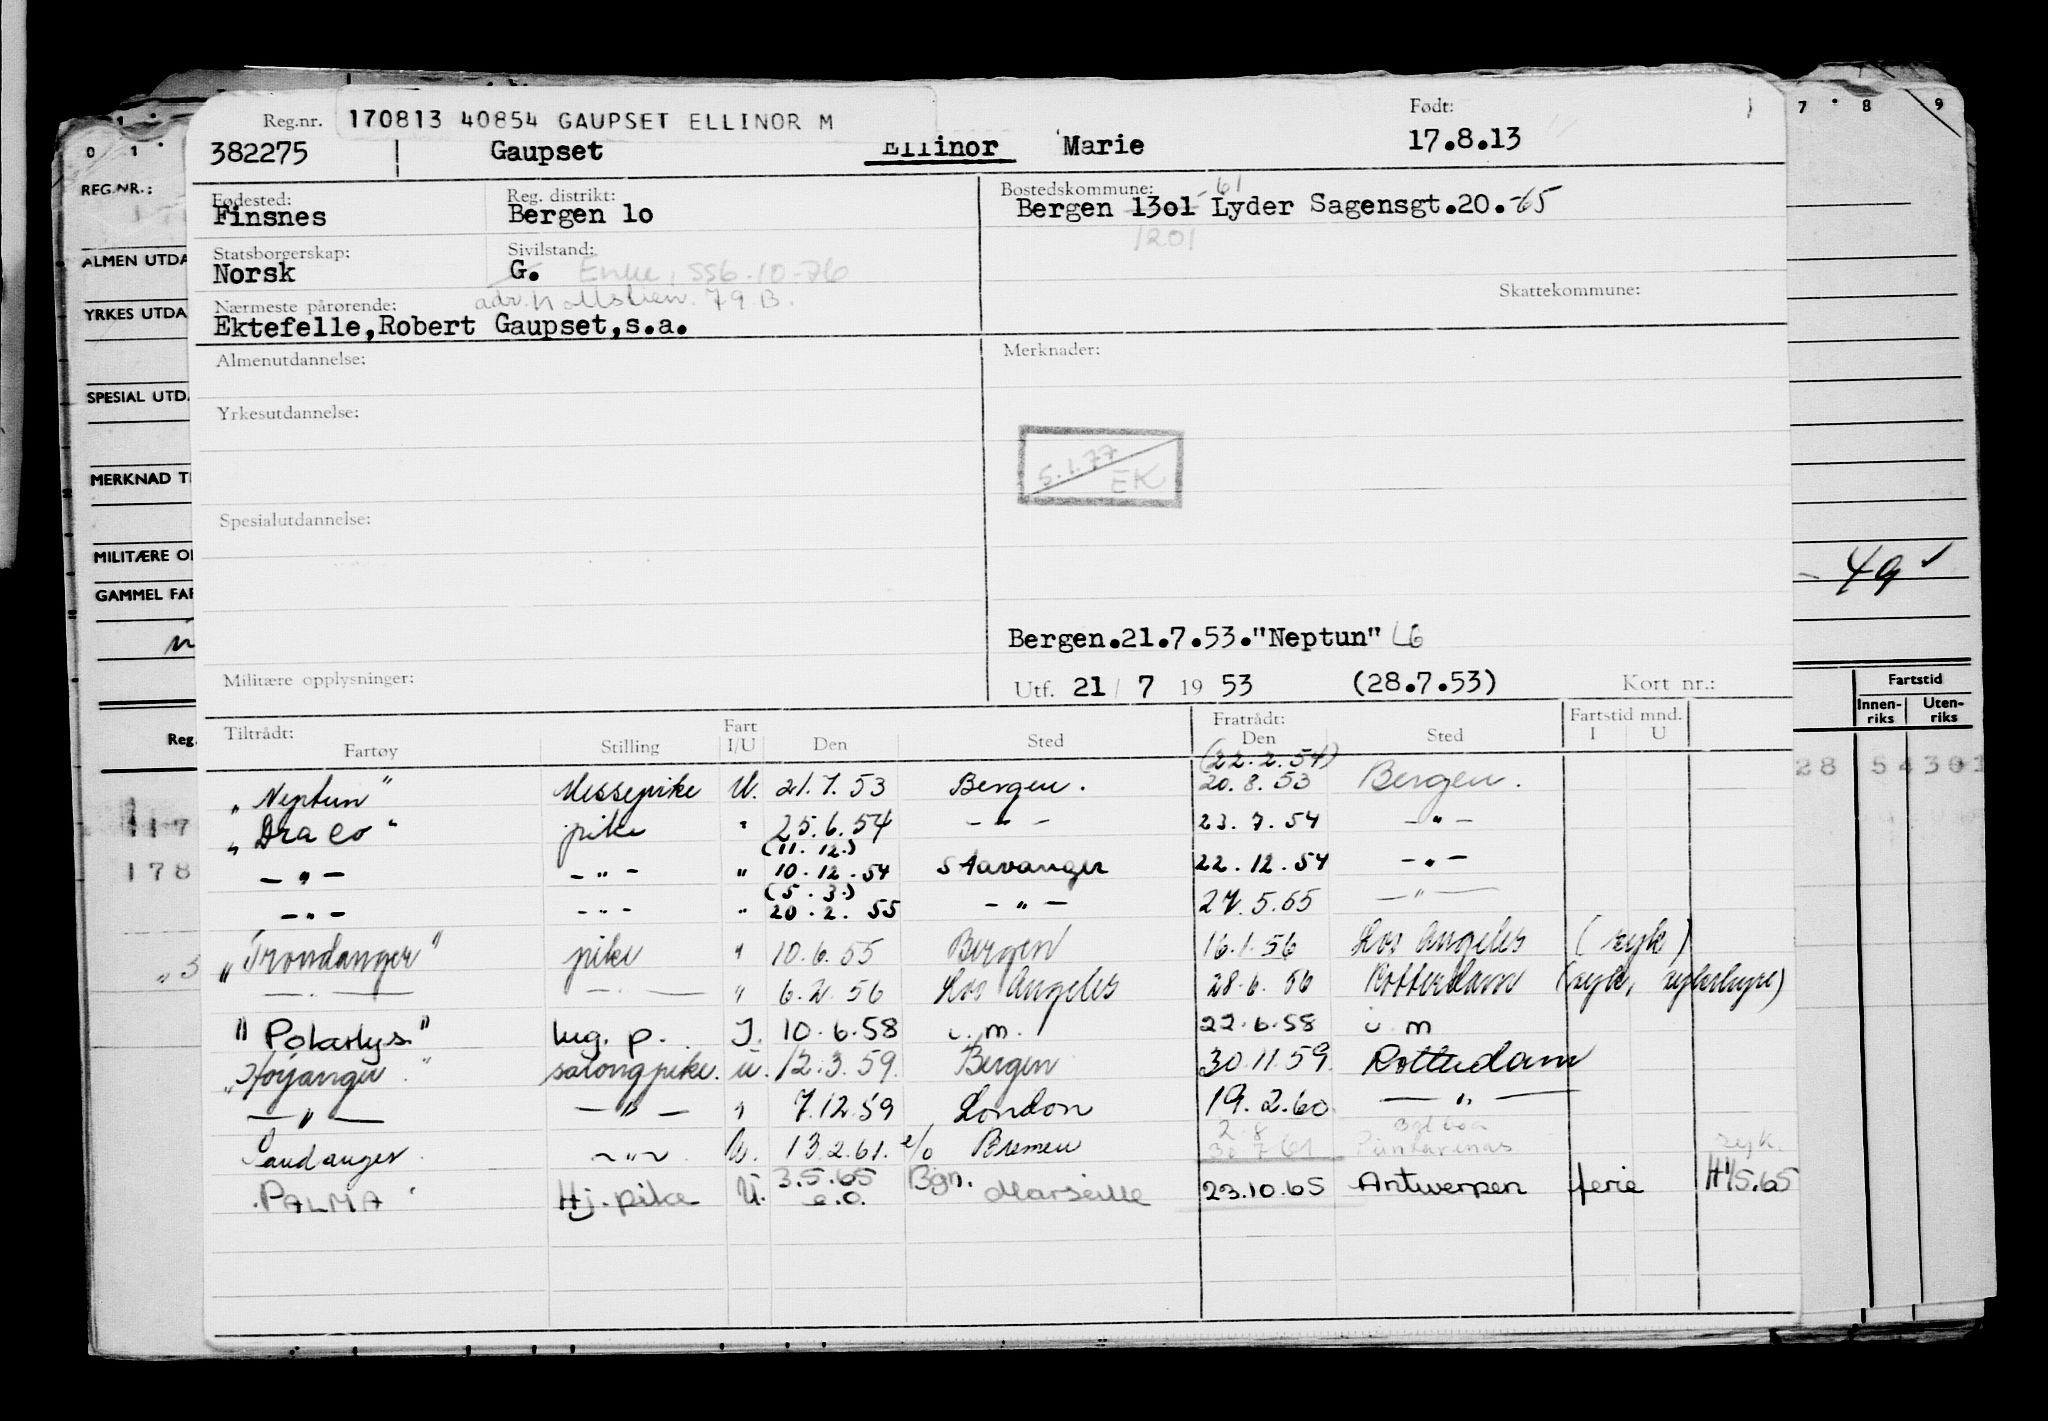 7 8 9
0 1
Reg.nr. 170813 40854 GAUPSET ELLINOR M Født:
382275 Gaupset Ellinor Marie 17.8.13
REG.NR.:
Fødested: Reg. distrikt: Bostedskommune: -61
Finsnes Bergen 1o Bergen 13o1 Lyder Sagensgt.20.-65
1201
ALMEN UTDA
Statsborgerskap: Sivilstand:
Norsk G. Enke, SS6-10-76
adr. 79 B. Skattekommune:
Nærmeste pårørende:
YRKES UTDA
Ektefelle,Robert Gaupset,s.a.
Almenutdannelse: Merknader:
SPESIAL UTD.
Yrkesutdannelse:
5.1.77
EK
MERKNAD TI
Spesialutdannelse:
MILITÆRE OI
49
GAMMEL FAR
Bergen.21.7.53."Neptun" LG
Militære opplysninger: Utf. 21 / 7 19 53 (28.7.53) Kort nr.:
Fartstid
Innen-riks Uten-riks
Reg.
Tiltrådt: Fart Fratrådt: Fartstid mnd.
Fartøy Stilling I/U Den Sted Den Sted I U
(22.2.54)
"Neptun" Messepike U. 21.7.53 Bergen. 20.8.53 Bergen.
28 54 301
"Draco" pike " 25.6.54 - " - 23.7.54 - " -
117
(11.12.)
- " - - " - " 10.12.54 Stavanger 22.12.54 - " -
178
(5.3.)
- " - - " - " 20.2.55 - " - 27.5.55 - " -
"Trondanger" pike " 10.6.55 Bergen 16.1.56 Los Angeles (syk)
- " - - " - " 6.2.56 Los Angeles 28.6.56 Rotterdam (syk, sykehyre)
"Polarlys" lug. p. I. 10.6.58 u.m. 22.6.58 u.m
"Høyanger" salongpike. u. 12.3.59. Bergen 30.11.59. Rotterdam
- " - - " - " 7.12.59 London 19.2.60 - " -
2.8 Balboa
Sandanger - " - U. 13.2.61. e/o Bremen 30.7.61 Puntarenas syk.
3.5.65 Bgn.
PALMA Hj. pike U. e.o. Marseille 23.10.65 Antwerpen ferie H15.65